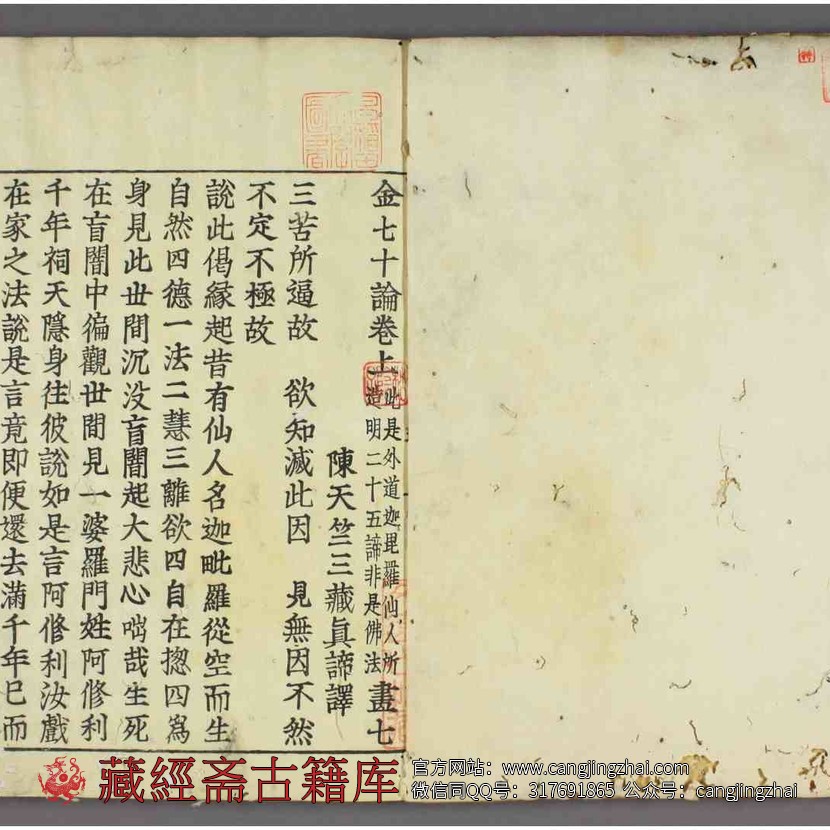 金七十論卷上 此是外道迦毘羅仙人所造明二十五諦非是佛法 畫七
陳天竺三藏真諦譯
三苦所逼故 欲知滅此因 見無因不然
不定不極故
說此偈緣起昔有仙人名迦毗羅從空而生
自然四德一法二慧三離欲四自在揔四為
身見此世間沉沒盲闇起大悲心咄哉生死
在盲闇中徧觀世間見一婆羅門姓阿修利
千年祠天隱身往彼說如是言阿修利汝戲
在家之法說是言竟即便還去滿千年已而
藏經斋古籍库
官方网站：www.cangjingzhai.com
微信同QQ号：317691865 公众号：cangjingzhai